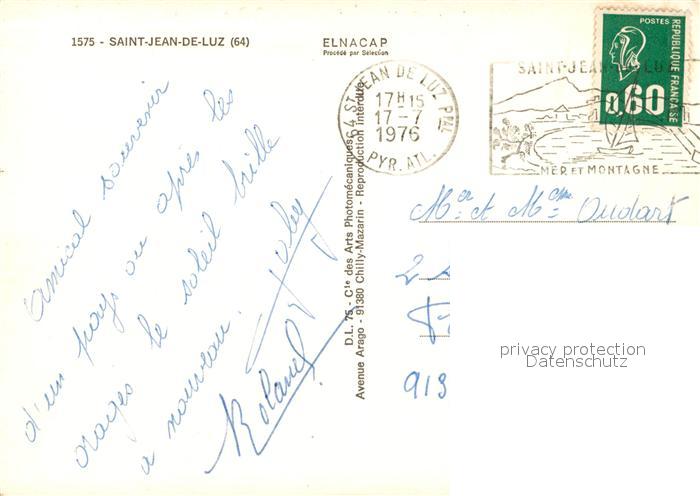 1575 - SAINT-JEAN-DE-LUZ (64)
ELNACAP
Procédé par Sélection
POSTES
REPUBLIQUE FRANÇAISE
0.60
64 ST JEAN DE LUZ PPAL
17H15
17-7
1976
PYR. ATL.
SAINT-JEAN-DE-LUZ
MER ET MONTAGNE
Amical souvenir
d'un pays ou après les
orages le soleil brille
a nouveau.
Roland
D.L. 75 - Cie des Arts Photomécaniques
Avenue Arago - 91380 Chilly-Mazarin - Reproduction interdite
Mr et Mme Oudart
2
913
privacy protection
Datenschutz